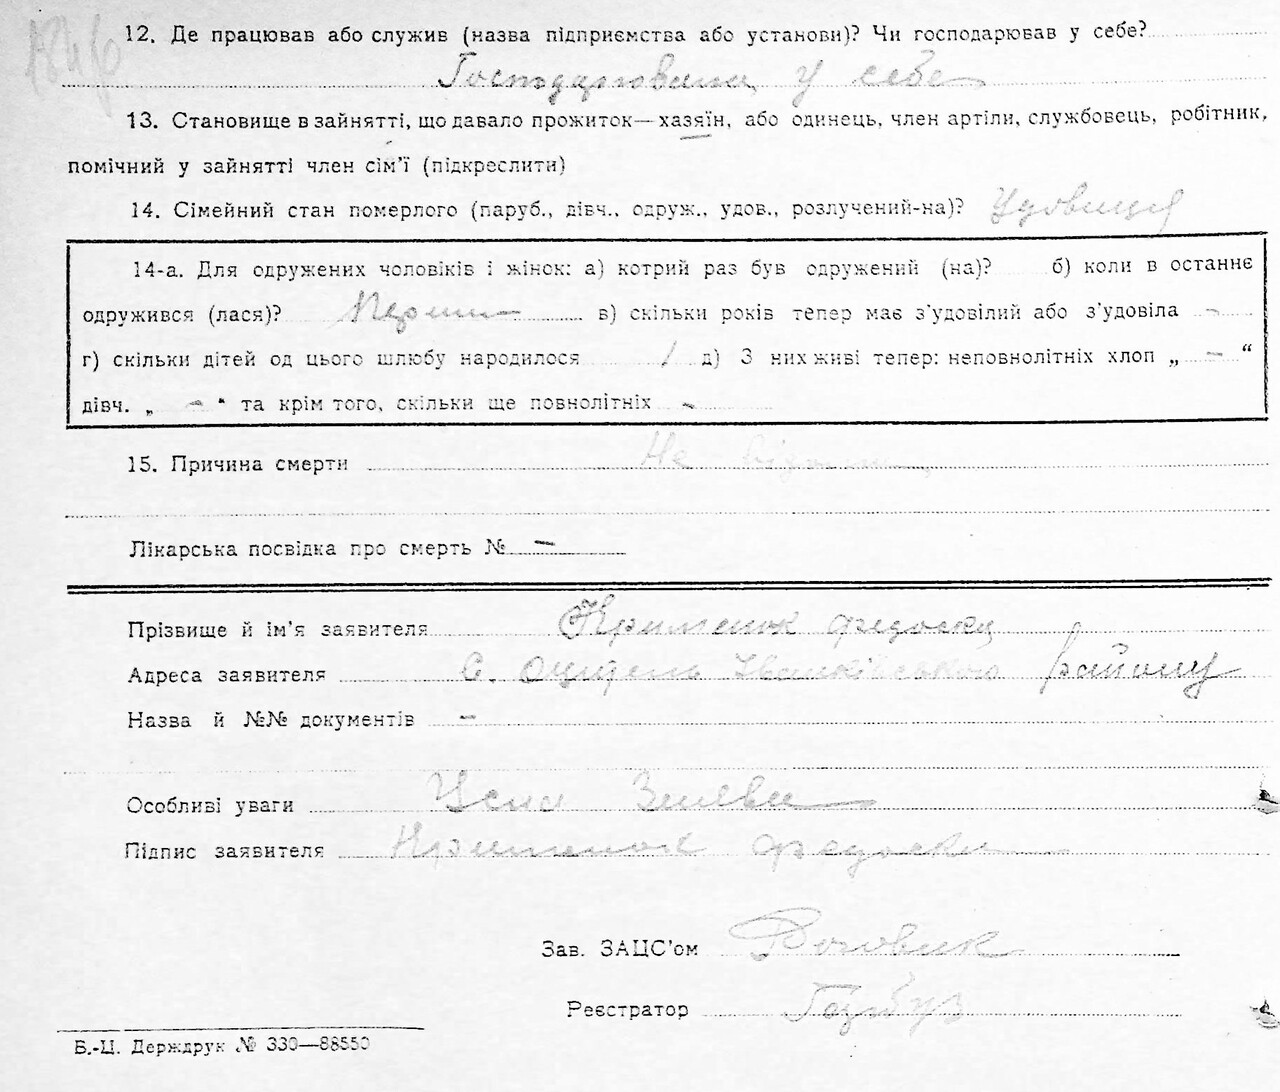 12. Де працював або служив (назва підприємства або установи)? Чи господарював у себе?
Господарювала у себе
13. Становище в зайнятті, що давало прожиток—хазяїн, або одинець, член артіли, службовець, робітник,
помічний у зайнятті член сім'ї (підкреслити)
14. Сімейний стан померлого (паруб., дівч., одруж., удов., розлучений-на)? Удовиця
14-а. Для одружених чоловіків і жінок: а) котрий раз був одружений (на)? б) коли в останнє
одружився (лася)? Перши в) скільки років тепер має з'удовілий або з'удовіла -
г) скільки дітей од цього шлюбу народилося / д) З них живі тепер: неповнолітніх хлоп „ - “
дівч. „ - “ та крім того, скільки ще повнолітніх -
15. Причина смерти Не відома
Лікарська посвідка про смерть № —
Прізвище й ім'я заявителя Федоска
Адреса заявителя С. Іванківського району
Назва й №№ документів -
Особливі уваги
Підпис заявителя Федоски
Зав. ЗАЦС'ом
Реєстратор Гарбуз
Б.-Ц. Держдрук № 330—88550